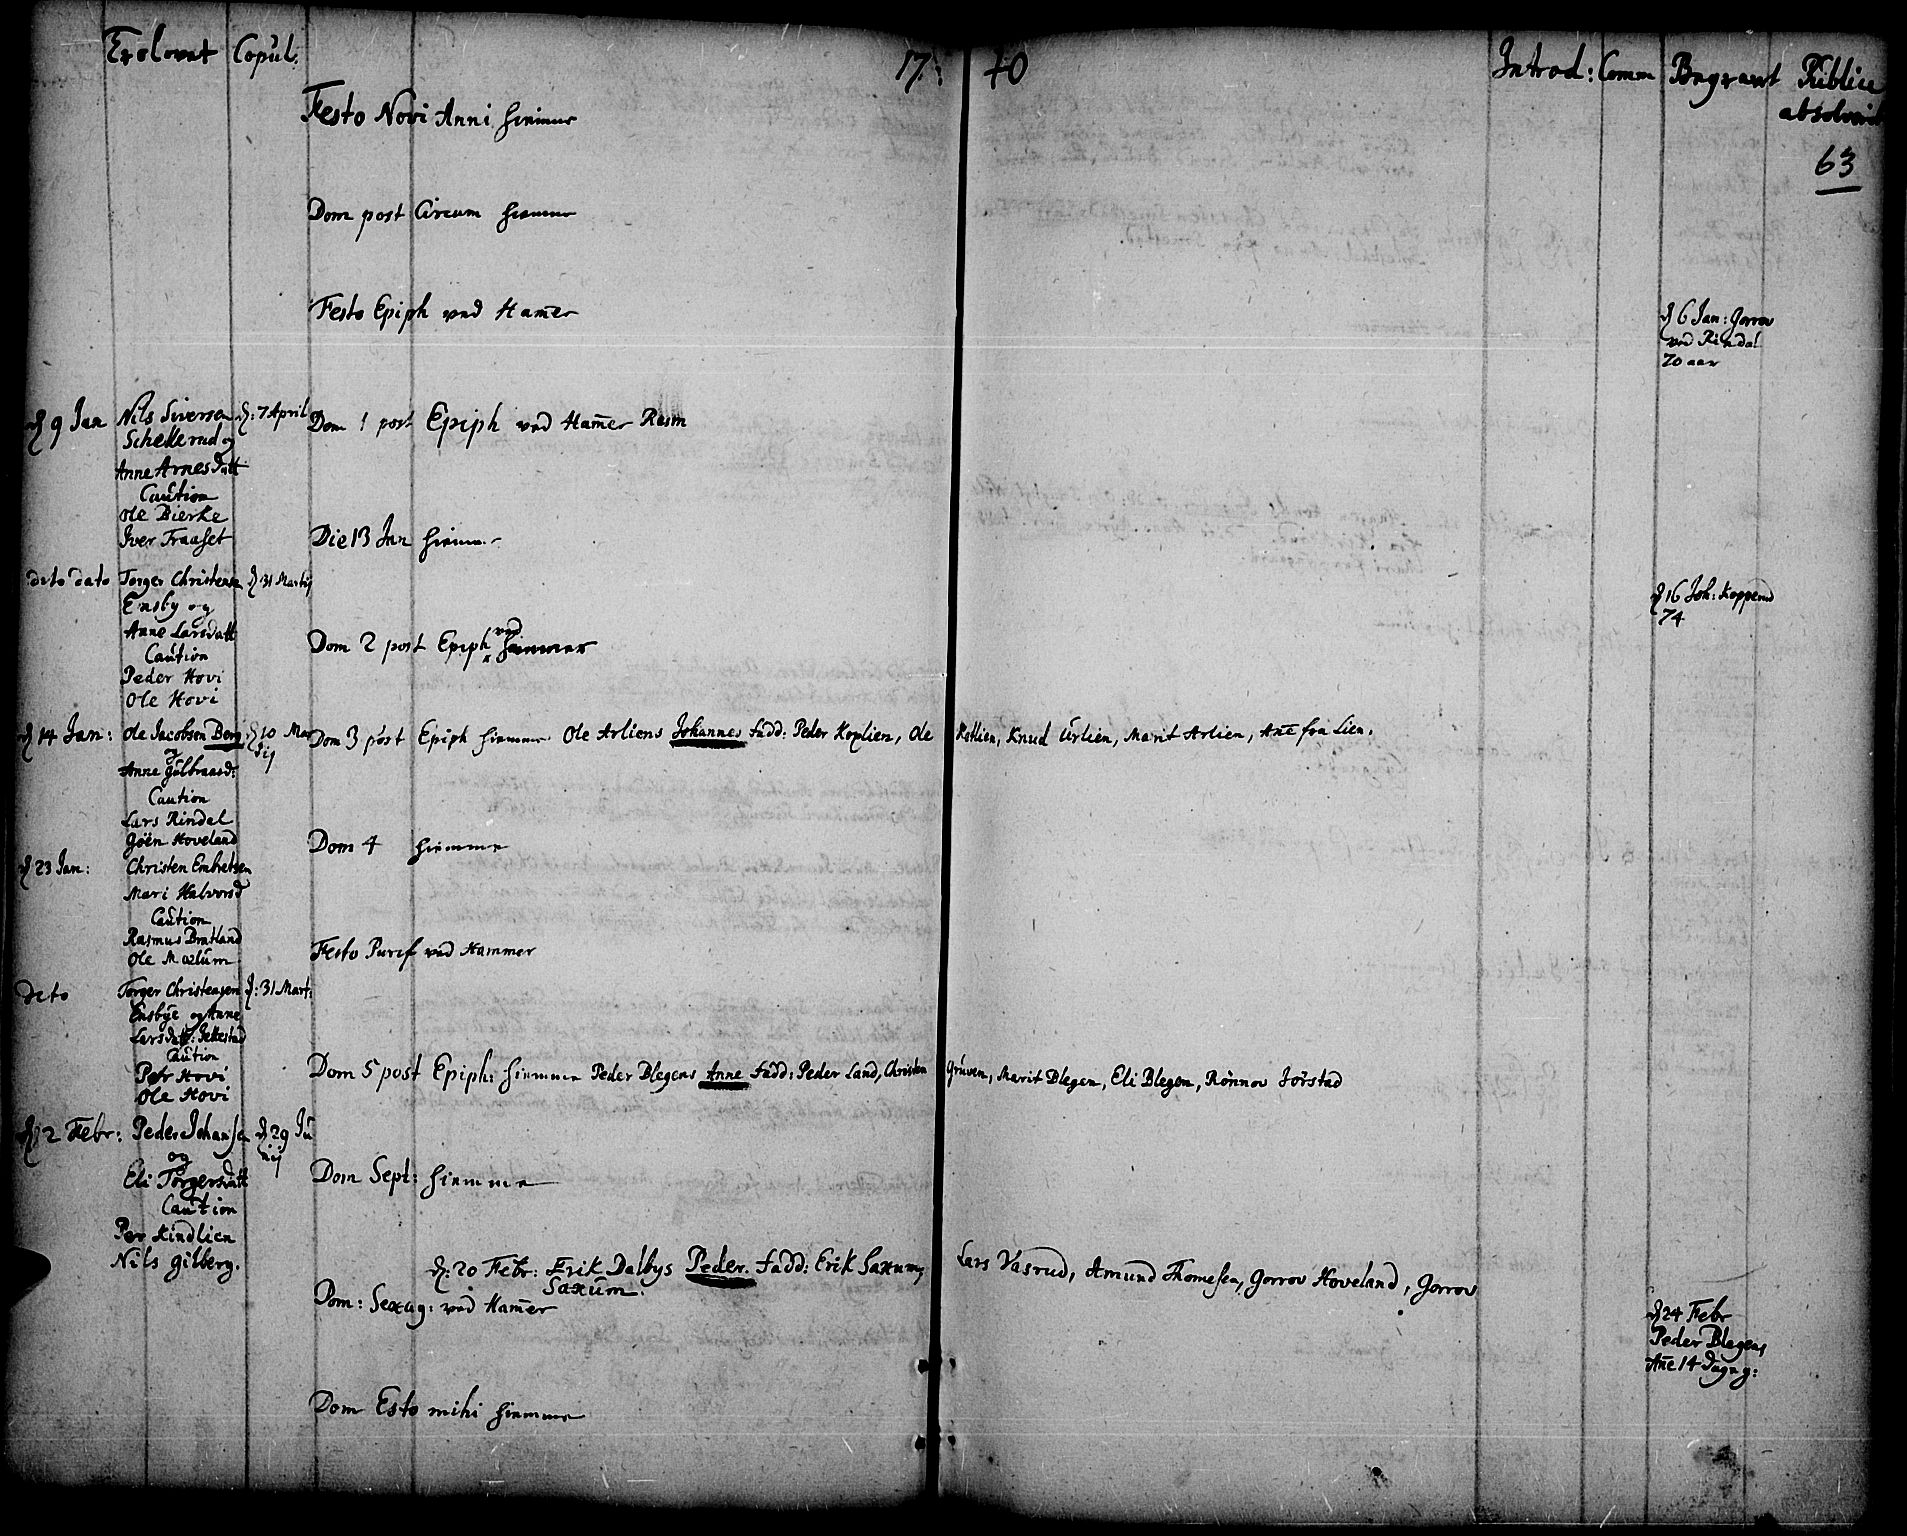 Trolovet Copul. 17 40 Introd: Comm Begravet Publice
absolverit
63
Festo Novi Anni hiemme
Dom post Circum hiemme
Festo Epiph ved Ham̄er
d 6 Jan: Gorrov
ved Rindal
70 aar
d 9 Jan Nils Siversøn d: 7 April
Schellerud og
Anne Arnesdatt
Caution
Ole Bierke
Iver Traaset
Dom 1 post Epiph ved Ham̄er
Die 13 Jan hiemme
dito dato Torger Christensen d 31 Martij
Ensby og
Anne Larsdatt
Caution
Peder Hovi
Ole Hovi
d 16 Joh: Kopperud
74
Dom 2 post Epiph ved Hammer
d 14 Jan: Ole Jacobsen Berg d 10 Mar
tij
og
Anne Gulbrandsd:
Caution
Lars Rindal
Joen Hoveland
Dom 3 post Epiph hiemme Ole Arliens Johannes fadd: Peder Koplien, Ole Kotlien, Knud Urlien, Marit Arlien, An̄e fra Lien.
Dom 4 hiemme
d 23 Jan: Christen Embretsen
Mari Halvorsd
Caution
Rasmus Bratland
Ole Maxlum
Festo Purif ved Hammer
dito Torger Christensen d: 31 Mart:
Ensbye og Anne
Larsdatt: Jekkestad
Caution
Peder Hovi
Ole Hovi
Dom 5 post Epiph: hiemme Peder Blegens Anne fadd: Peder Land, Christen Gruven, Marit Blegen, Eli Blegen, Rønnov Jørstad
d 12 Febr: Peder Johansen d 29 Ju
nij
og
Eli Torgersdatt
Caution
Per Kindlien
Nils Gilberg.
Dom Sept: hiemme
d: 20 Febr: Erik Dalbys Peder. fadd: Erik Saxum, Lars Vasrud, Amund Thomesen, Gorrov Hoveland, Gorrov
Saxum.
Dom: Sexag: ved Ham̄er
d 24 Febr
Peder Blegens
An̄e 14 dage g:
Dom Esto mihi hiemme